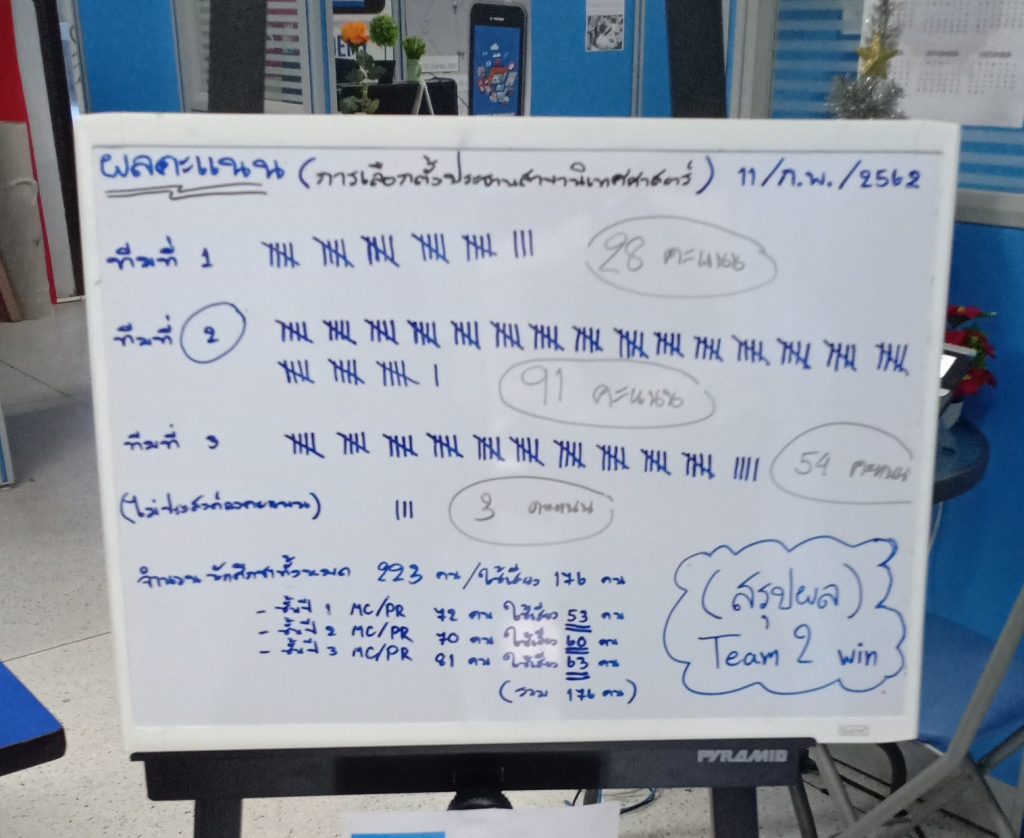 ผลคะแนน (การเลือกตั้งประธานสาขานิเทศศาสตร์) 11/ก.พ./2562
ทีมที่ 1 28 คะแนน
ทีมที่ 2
91 คะแนน
ทีมที่ 3 54 คะแนน
(ไม่ประสงค์ลงคะแนน) 3 คะแนน
จำนวนนักศึกษาทั้งหมด 223 คน/ใช้เสียง 176 คน
- ชั้นปี 1 MC/PR 72 คน ใช้เสียง 53 คน
- ชั้นปี 2 MC/PR 70 คน ใช้เสียง 60 คน
- ชั้นปี 3 MC/PR 81 คน ใช้เสียง 63 คน
(รวม 176 คน)
(สรุปผล)
Team 2 win
PYRAMID